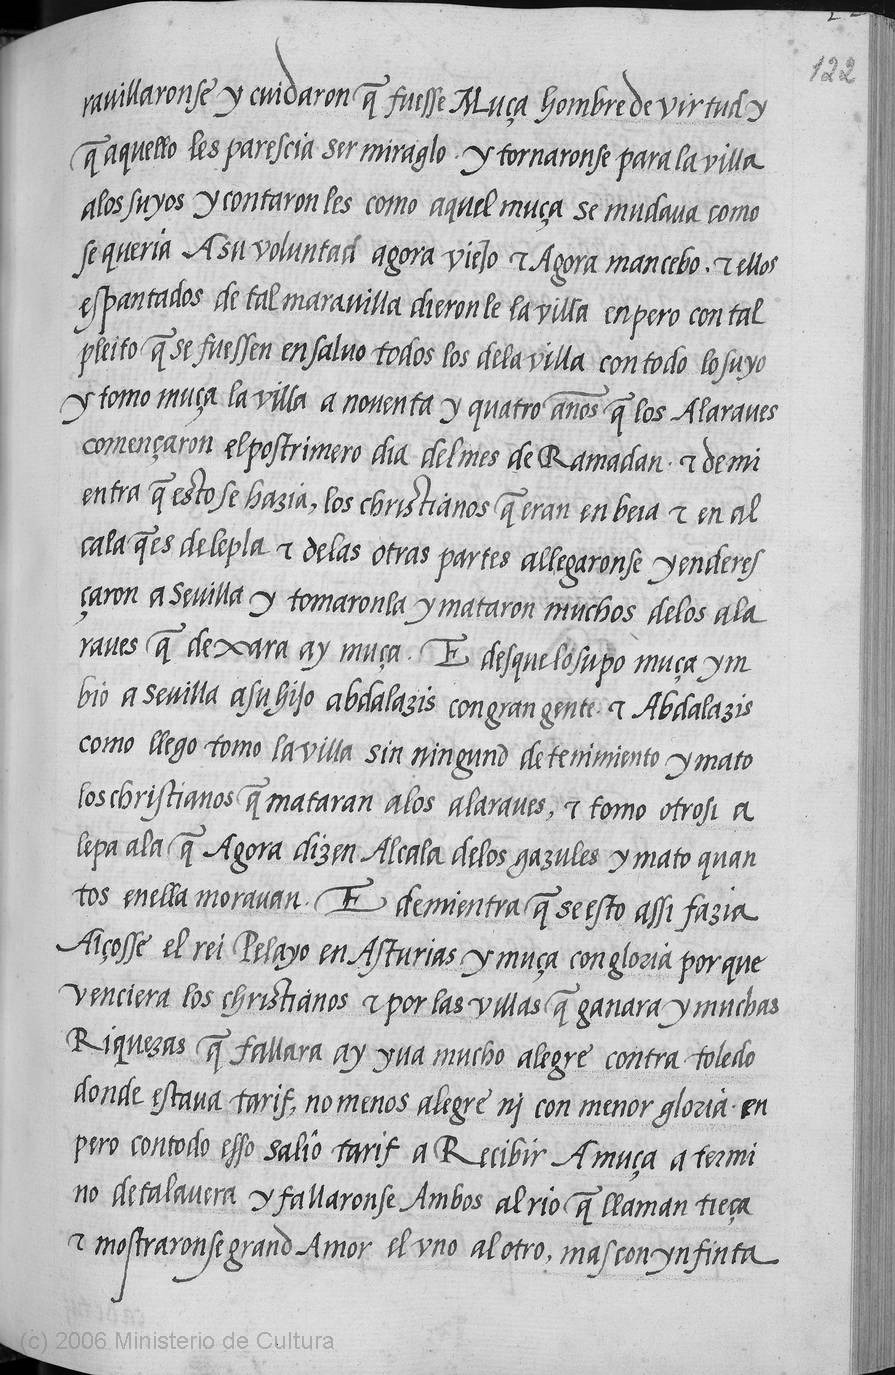 122
rauillaronse y cuidaron q̃ fuesse Muça hombre de virtud y
q̃ aquello les parescia ser miraglo. y tornaronse para la villa
alos suyos y contaron les como aquel muça se mudaua como
se queria A su voluntad agora viejo τ Agora mancebo. τ ellos
espantados de tal marauilla dieron le la villa enpero con tal
pleito q̃ se fuessen en saluo todos los dela villa con todo lo suyo
y tomo muça la villa a nouenta y quatro años q̃ los Alaraues
començaron el postrimero dia del mes de Ramadan. τ de mi
entra q̃ esto se hazia, los christianos q̃ eran en beia τ en al
cala q̃ es de lepla τ de las otras partes allegaronse y enderes
çaron a Seuilla y tomaronla y mataron muchos delos ala
raues q̃ dexara ay muça. E desque lo supo muça ym
bio a Seuilla a su hijo abdalazis con gran gente. τ Abdalazis
como llego tomo la villa sin ningund detenimiento y mato
los christianos q̃ mataran alos alaraues, τ tomo otrosi a
lepa ala q̃ Agora dizen Alcala delos gazules y mato quan
tos en ella morauan. E demientra q̃ se esto assi fazia
Alçosse el rei Pelayo en Asturias y muça con gloria por que
venciera los christianos τ por las villas q̃ ganara y muchas
Riquezas q̃ fallara ay yua mucho alegre contra toledo
donde estaua tarif, no menos alegre nj con menor gloria. en
pero con todo esso salio tarif a Recibir A muça a termi
no de talauera y fallaronse Ambos al rio q̃ llaman tieça
τ mostraronse grand Amor el vno al otro, mas con ynfinta
(c) 2006 Ministerio de Cultura